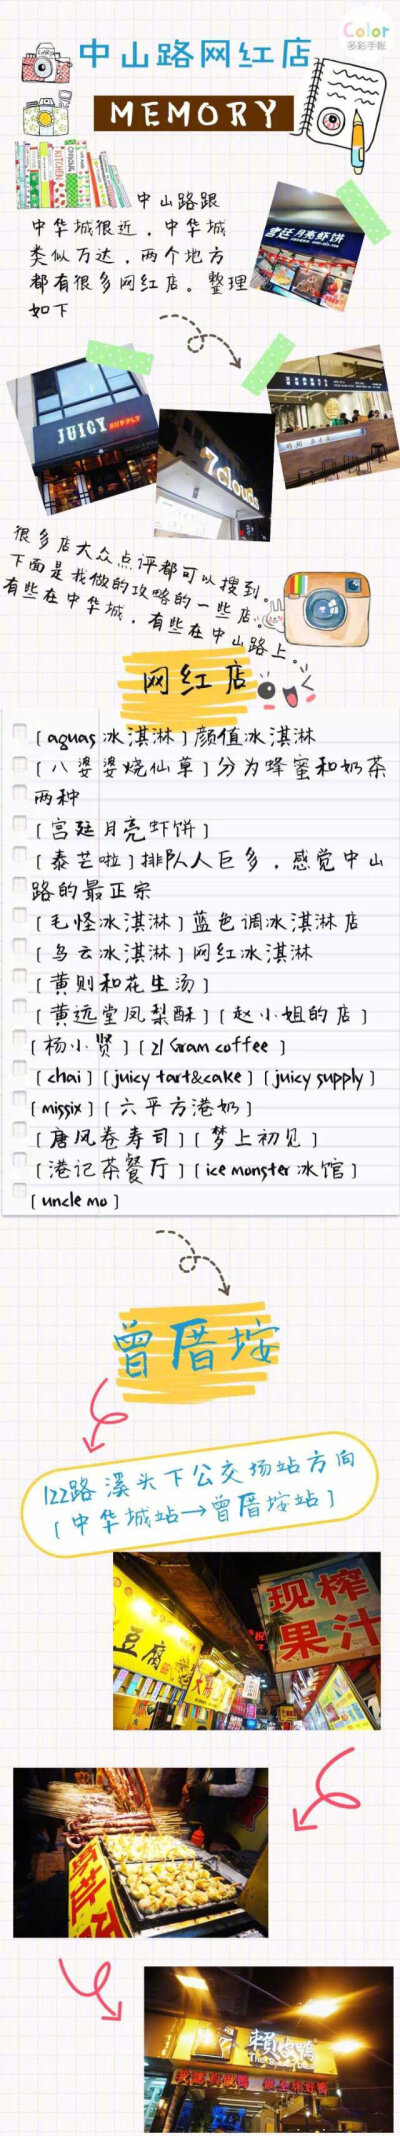 Color
多彩手帐
中山路网红店
MEMORY
中山路跟
中华城很近，中华城
类似万达，两个地方
都有很多网红店。整理
如下
宫廷月亮虾饼
JUICY SUPPLY
7clouds
很多店大众点评都可以搜到。
下面是我做的攻略的一些店。
有些在中华城，有些在中山路上。
网红店
[aguas冰淇淋]颜值冰淇淋
[八婆婆烧仙草]分为蜂蜜和奶茶
两种
[宫廷月亮虾饼]
[泰芒啦]排队人巨多，感觉中山
路的最正宗
[毛怪冰淇淋]蓝色调冰淇淋店
[乌云冰淇淋]网红冰淇淋
[黄则和花生汤]
[黄远堂凤梨酥][赵小姐的店]
[杨小贤][21 Gram coffee]
[chai][juicy tart&cake][juicy supply]
[missix][六平方港奶]
[唐风卷寿司][梦上初见]
[港记茶餐厅][ice monster冰馆]
[uncle mo]
曾厝垵
122路 溪头下公交场站方向
[中华城站→曾厝垵站]
豆腐
现榨
果汁